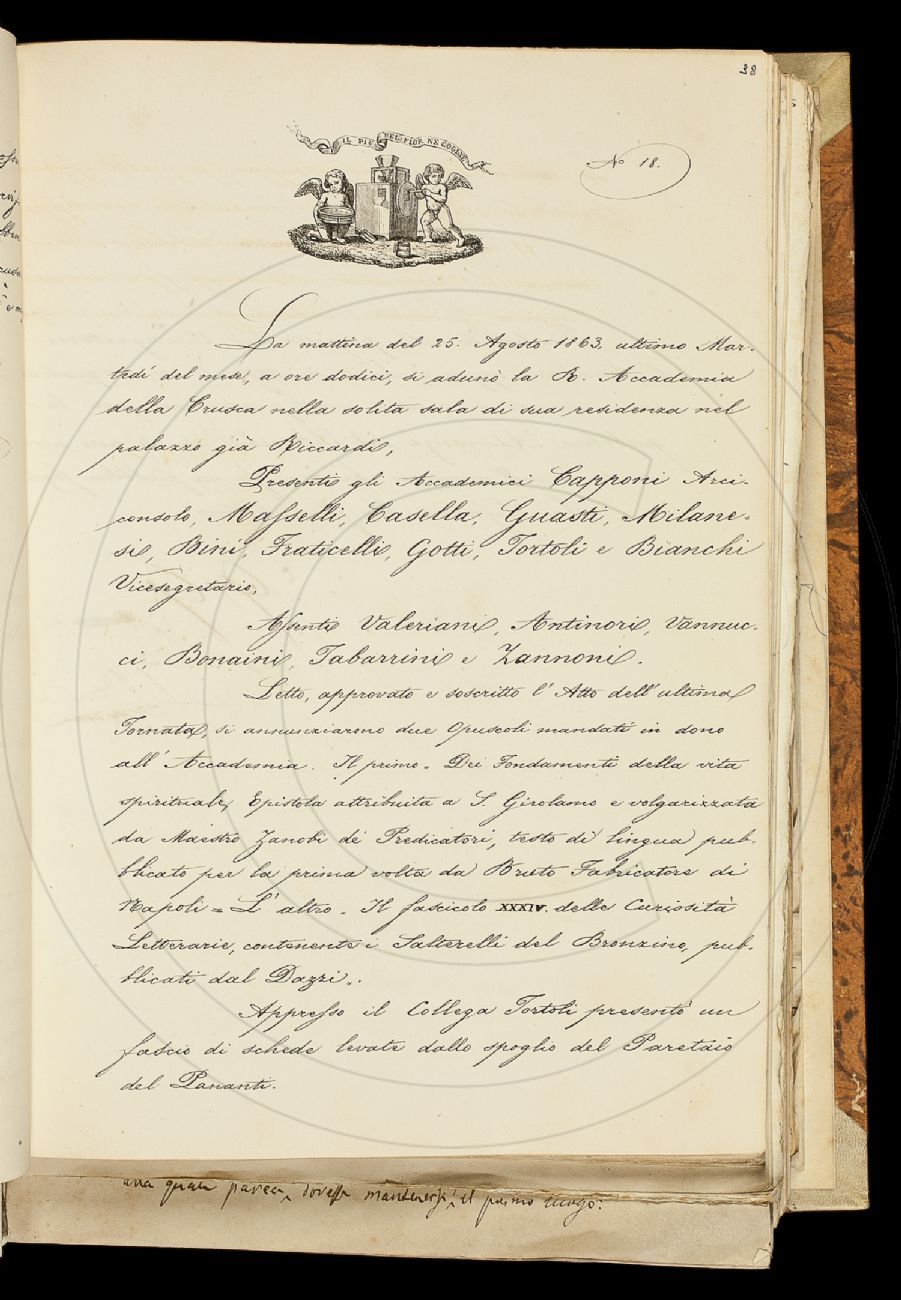 38
IL PIÙ BEL FIOR NE COGLIE
N.º 18.
La mattina del 25. Agosto 1863. ultimo Mar-
tedì del mese, a ore dodici, si adunò la R. Accademia
della Crusca nella solita sala di sua residenza nel
palazzo già Riccardi,
Presenti gli Accademici Capponi Arci-
consolo, Masselli, Casella, Guasti, Milane-
si, Bini, Fraticelli, Gotti, Tortoli e Bianchi
Vicesegretario,
Assenti Valeriani, Antinori, Vannuc-
ci, Bonaini, Tabarrini e Zannoni.
Letto, approvato e soscritto l'Atto dell'ultima
Tornata, si annunziarono due Opuscoli mandati in dono
all'Accademia. Il primo „ Dei Fondamenti della vita
spirituale, Epistola attribuita a S. Girolamo e volgarizzata
da Maestro Zanobi de' Predicatori, testo di lingua pub-
blicato per la prima volta da Bruto Fabricatore di
Napoli = L'altro „ Il fascicolo XXXIV. delle Curiosità
Letterarie, contenente i Salterelli del Bronzino, pub-
blicati dal Dazzi „.
Appresso il Collega Tortoli presentò un
fascio di schede levate dallo spoglio del Paretaio
del Pananti.
parea dovesse mantenersi il primo luogo: